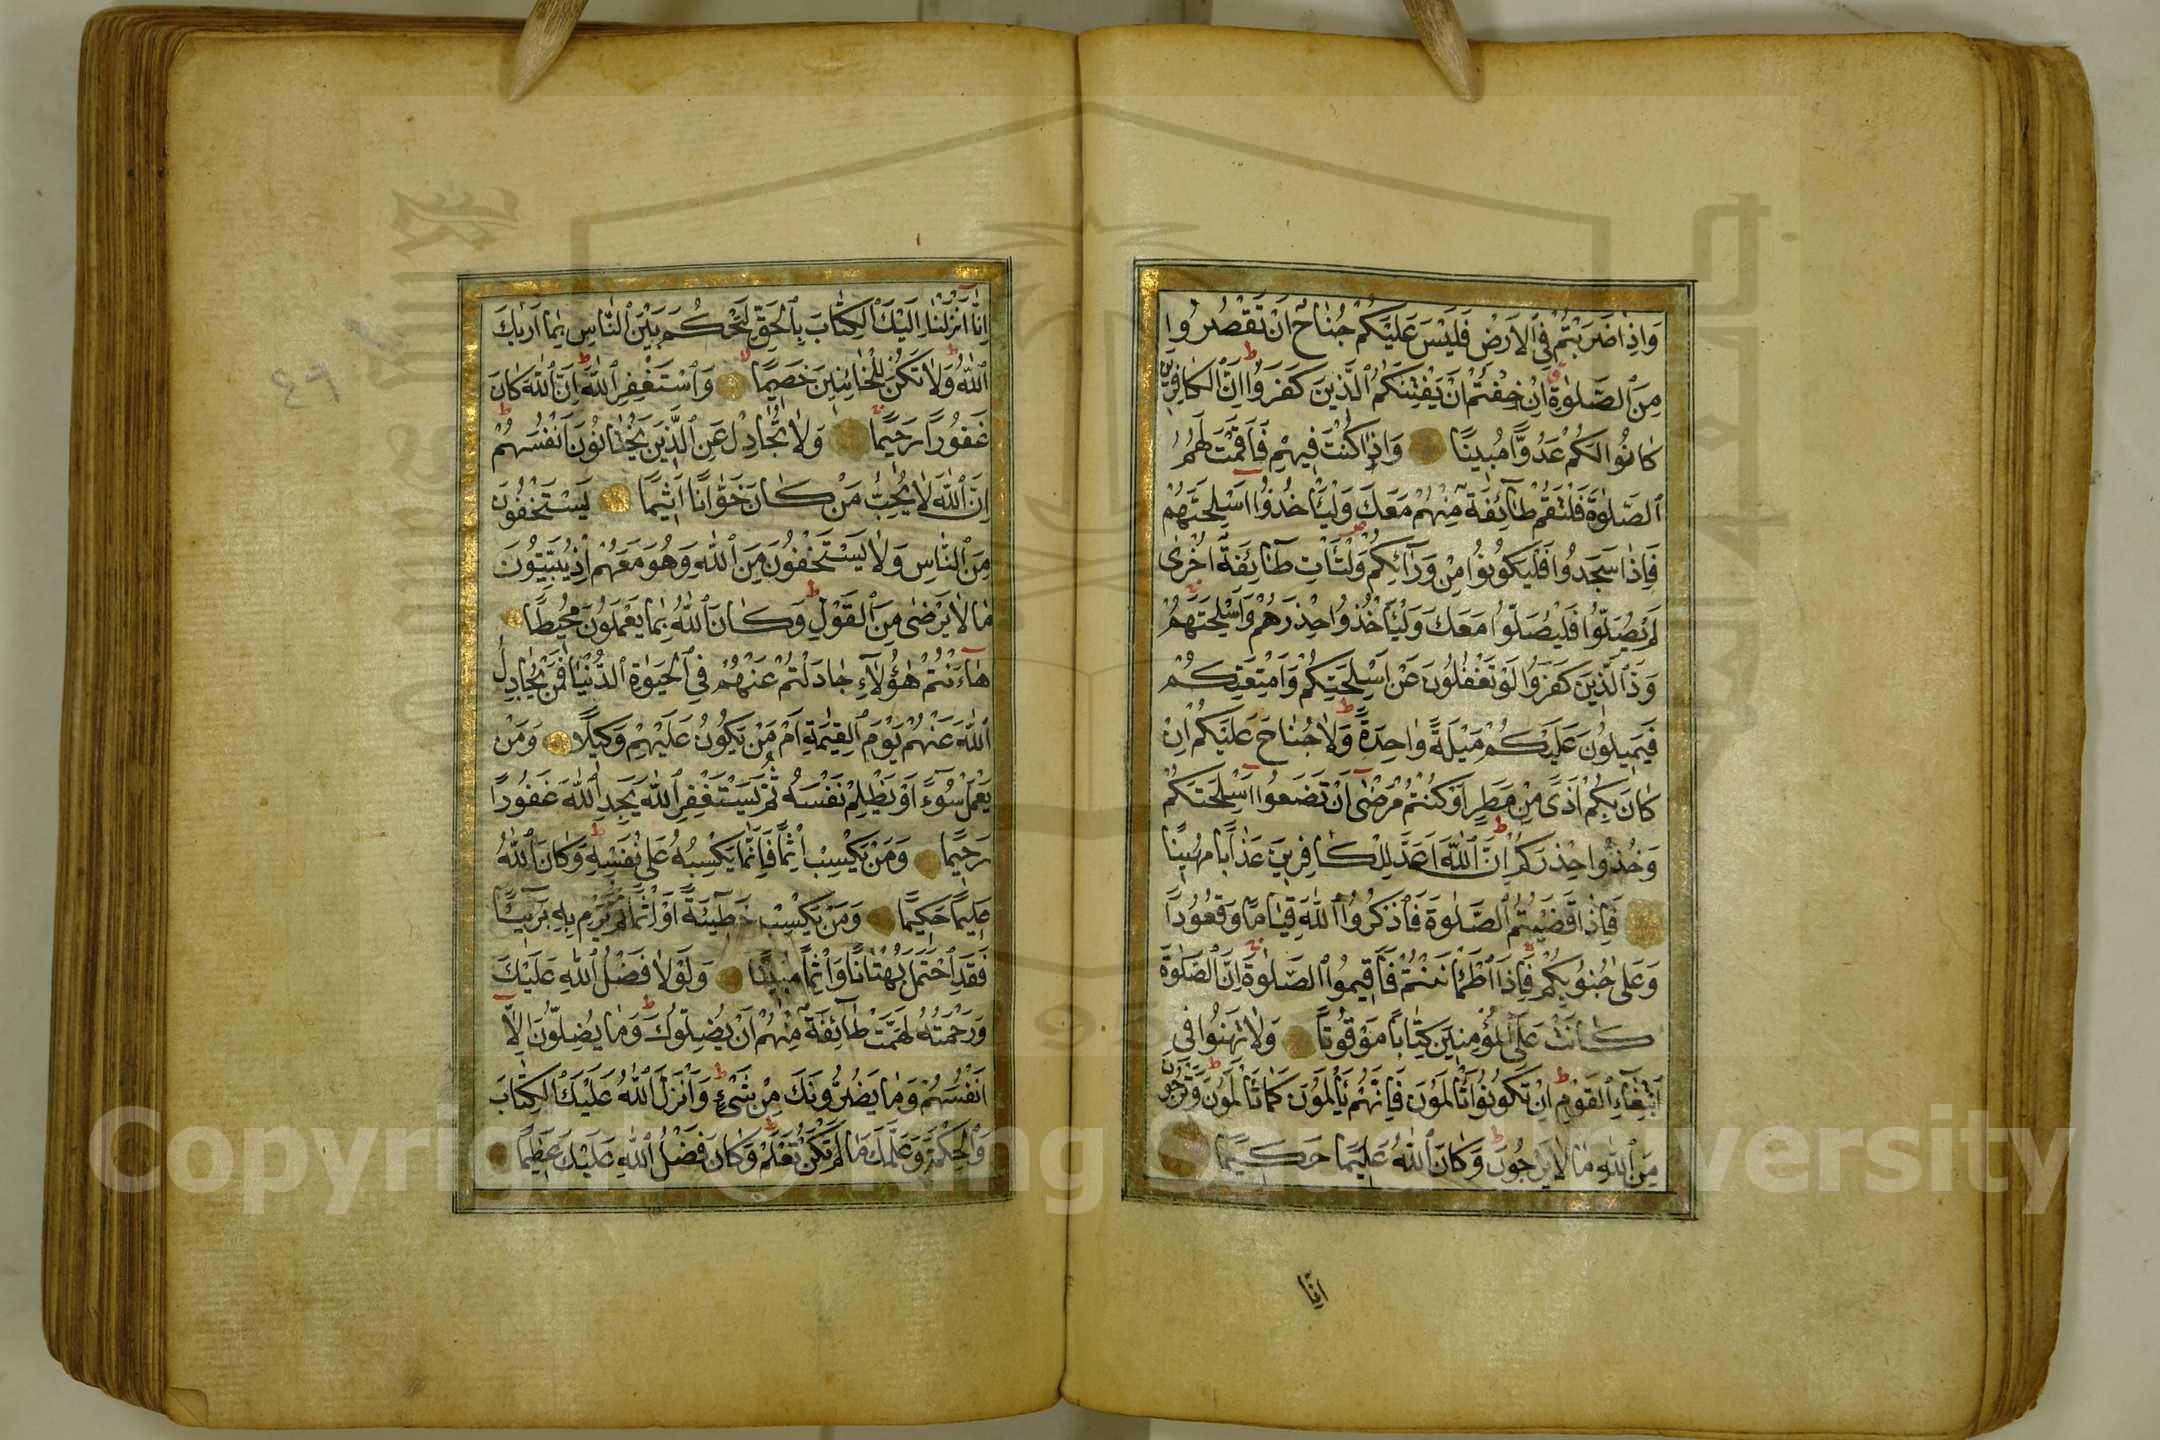 وَاِذَا ضَرَبْتُمْ فِي الْاَرْضِ فَلَيْسَ عَلَيْكُمْ جُنَاحٌ اَنْ تَقْصُرُوا
مِنَ الصَّلٰوةِ اِنْ خِفْتُمْ اَنْ يَفْتِنَكُمُ الَّذِينَ كَفَرُوا اِنَّ الْكَافِرِينَ
كَانُوا لَكُمْ عَدُوًّا مُبِينًا وَاِذَا كُنْتَ فِيهِمْ فَاَقَمْتَ لَهُمُ
الصَّلٰوةَ فَلْتَقُمْ طَآئِفَةٌ مِنْهُمْ مَعَكَ وَلْيَأْخُذُوا اَسْلِحَتَهُمْ
فَاِذَا سَجَدُوا فَلْيَكُونُوا مِنْ وَرَآئِكُمْ وَلْتَأْتِ طَآئِفَةٌ اُخْرٰى
لَمْ يُصَلُّوا فَلْيُصَلُّوا مَعَكَ وَلْيَأْخُذُوا حِذْرَهُمْ وَاَسْلِحَتَهُمْ
وَدَّ الَّذِينَ كَفَرُوا لَوْ تَغْفُلُونَ عَنْ اَسْلِحَتِكُمْ وَاَمْتِعَتِكُمْ
فَيَمِيلُونَ عَلَيْكُمْ مَيْلَةً وَاحِدَةً وَلَا جُنَاحَ عَلَيْكُمْ اِنْ
كَانَ بِكُمْ اَذًى مِنْ مَطَرٍ اَوْ كُنْتُمْ مَرْضٰى اَنْ تَضَعُوا اَسْلِحَتَكُمْ
وَخُذُوا حِذْرَكُمْ اِنَّ اللّٰهَ اَعَدَّ لِلْكَافِرِينَ عَذَابًا مُهِينًا
فَاِذَا قَضَيْتُمُ الصَّلٰوةَ فَاذْكُرُوا اللّٰهَ قِيَامًا وَقُعُودًا
وَعَلٰى جُنُوبِكُمْ فَاِذَا اطْمَأْنَنْتُمْ فَاَقِيمُوا الصَّلٰوةَ اِنَّ الصَّلٰوةَ
كَانَتْ عَلَى الْمُؤْمِنِينَ كِتَابًا مَوْقُوتًا وَلَا تَهِنُوا فِي
ابْتِغَآءِ الْقَوْمِ اِنْ تَكُونُوا تَأْلَمُونَ فَاِنَّهُمْ يَأْلَمُونَ كَمَا تَأْلَمُونَ وَتَرْجُونَ
مِنَ اللّٰهِ مَا لَا يَرْجُونَ وَكَانَ اللّٰهُ عَلِيمًا حَكِيمًا
اِنَّا
اِنَّآ اَنْزَلْنَآ اِلَيْكَ الْكِتَابَ بِالْحَقِّ لِتَحْكُمَ بَيْنَ النَّاسِ بِمَا اَرٰيكَ
اللّٰهُ وَلَا تَكُنْ لِلْخَائِنِينَ خَصِيمًا وَاسْتَغْفِرِ اللّٰهَ اِنَّ اللّٰهَ كَانَ
غَفُورًا رَحِيمًا وَلَا تُجَادِلْ عَنِ الَّذِينَ يَخْتَانُونَ اَنْفُسَهُمْ
اِنَّ اللّٰهَ لَا يُحِبُّ مَنْ كَانَ خَوَّانًا اَثِيمًا يَسْتَخْفُونَ
مِنَ النَّاسِ وَلَا يَسْتَخْفُونَ مِنَ اللّٰهِ وَهُوَ مَعَهُمْ اِذْ يُبَيِّتُونَ
مَا لَا يَرْضٰى مِنَ الْقَوْلِ وَكَانَ اللّٰهُ بِمَا يَعْمَلُونَ مُحِيطًا
هَآ اَنْتُمْ هٰٓؤُلَآءِ جَادَلْتُمْ عَنْهُمْ فِي الْحَيٰوةِ الدُّنْيَا فَمَنْ يُجَادِلُ
اللّٰهَ عَنْهُمْ يَوْمَ الْقِيٰمَةِ اَمْ مَنْ يَكُونُ عَلَيْهِمْ وَكِيلًا وَمَنْ
يَعْمَلْ سُوٓءًا اَوْ يَظْلِمْ نَفْسَهُ ثُمَّ يَسْتَغْفِرِ اللّٰهَ يَجِدِ اللّٰهَ غَفُورًا
رَحِيمًا وَمَنْ يَكْسِبْ اِثْمًا فَاِنَّمَا يَكْسِبُهُ عَلٰى نَفْسِهِ وَكَانَ اللّٰهُ
عَلِيمًا حَكِيمًا وَمَنْ يَكْسِبْ خَطِيٓئَةً اَوْ اِثْمًا ثُمَّ يَرْمِ بِهِ بَرِيٓئًا
فَقَدِ احْتَمَلَ بُهْتَانًا وَاِثْمًا مُبِينًا وَلَوْلَا فَضْلُ اللّٰهِ عَلَيْكَ
وَرَحْمَتُهُ لَهَمَّتْ طَآئِفَةٌ مِنْهُمْ اَنْ يُضِلُّوكَ وَمَا يُضِلُّونَ اِلَّآ
اَنْفُسَهُمْ وَمَا يَضُرُّونَكَ مِنْ شَيْءٍ وَاَنْزَلَ اللّٰهُ عَلَيْكَ الْكِتَابَ
وَالْحِكْمَةَ وَعَلَّمَكَ مَا لَمْ تَكُنْ تَعْلَمُ وَكَانَ فَضْلُ اللّٰهِ عَلَيْكَ عَظِيمًا
٤٦
Copyright © King Saud University